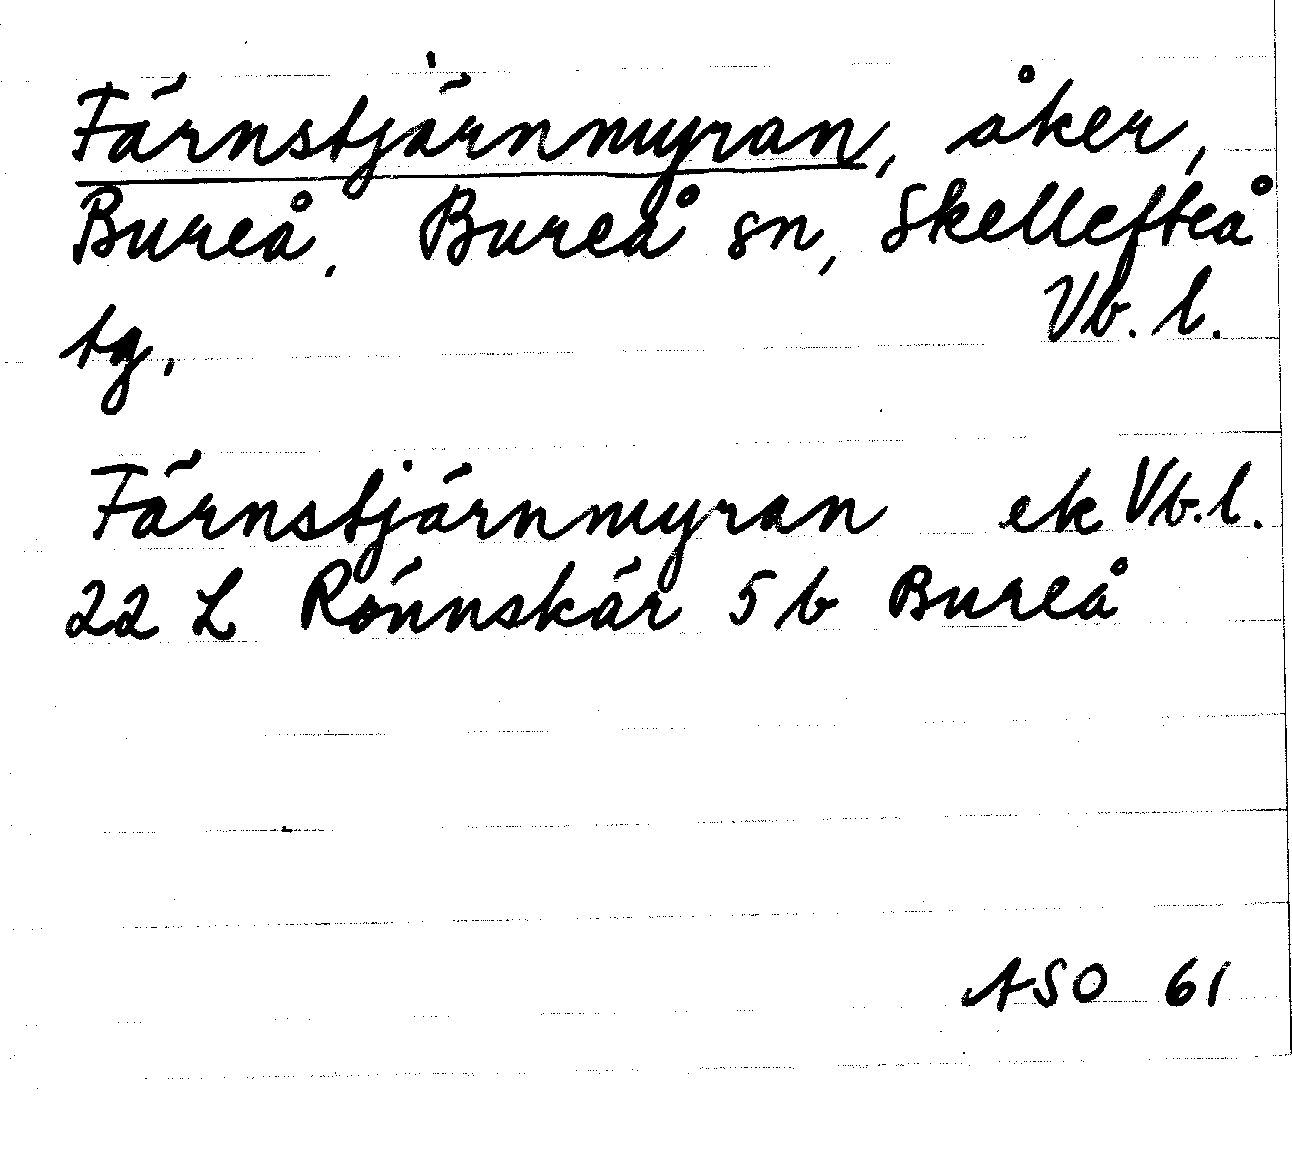 Färnstjärnmyran, åker,
Bureå, Bureå sn, Skellefteå
tg. Vb. l.
Färnstjärnmyran ek Vb.l.
22 L Rönnskär 5 b Bureå
ASO 61